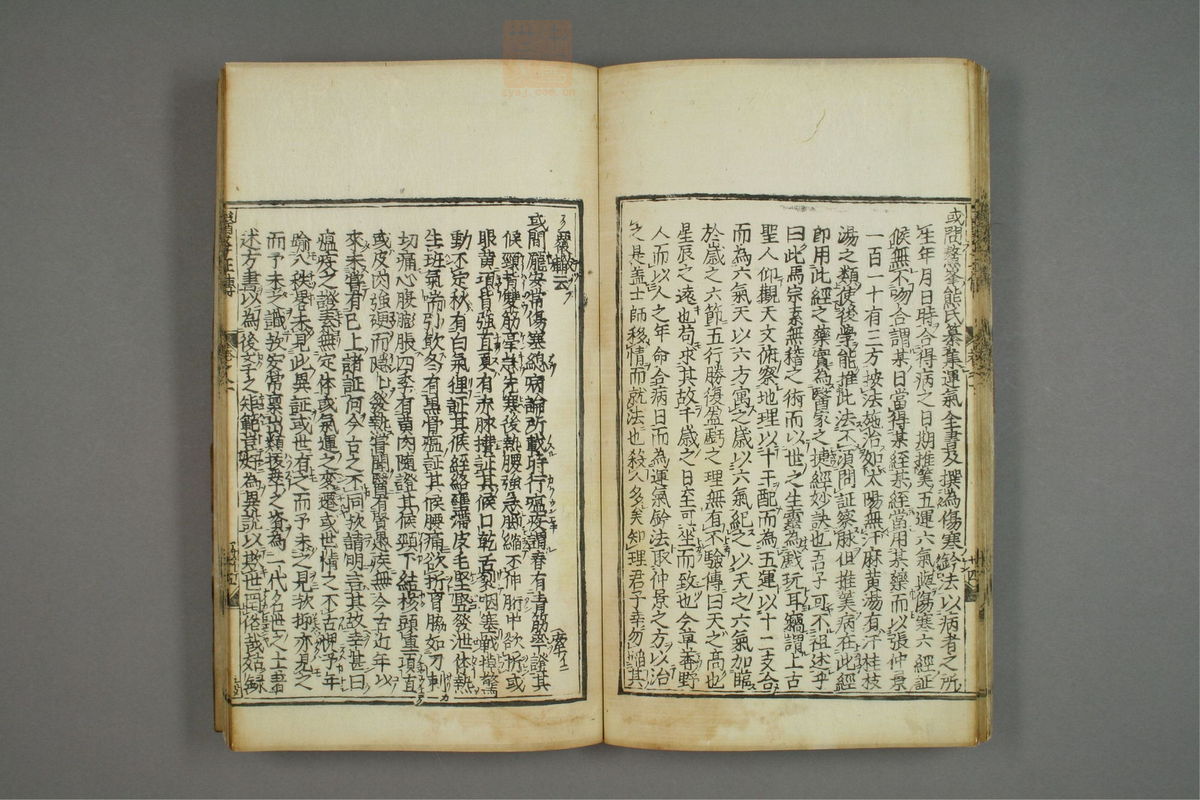 或問鰲峯熊氏纂集運氣全書及撰為傷寒鈐法以病者之所
生年月日時合得病之日期推筭五運六氣與傷寒六經証
候無不吻合謂某日當得某經某經當用某藥而以張仲景
一百一十有三方按法施治如太陽無汗麻黃湯有汗桂枝
湯之類使後學能推此法不須問証察脉但推筭病在此經
即用此經之藥實為醫家之捷經妙訣也吾子可不祖述乎
曰此馬宗素無稽之術而以世之生靈為戲玩耳竊謂上古
聖人仰觀天文俯察地理以十干配而為五運以十二支合
而為六氣天以六方寓之歲以六氣紀之以天之六氣加臨
於歲之六節五行勝復盈虧之理無有不驗傳曰天之高也
星辰之遠也苟求其故千歲之日至可坐而致也今草莽野
人而以人之年命合病日而為運氣鈐法取仲景之方以治
之是盖士師移情而就法也殺人多矣知理君子幸勿蹈其
覆轍云
或問龐安常傷寒總病論所載時行瘟疫謂春有青筋牽證其
候頸背雙筋牽急先寒後熱腰強急脚縮不伸胻中欲折或
眼黃項背強直夏有赤脉攢証其候口乾舌裂咽塞戰掉驚
動不定秋有白氣狸証其候經絡壅滯皮毛堅竪發泄体熱
生斑氣喘引飲冬有黑骨瘟証其候腰痛欲折胷脇如刀刺
切痛心腹膨脹四季有黃肉隨證其候頸下結核頭重項直
或皮肉強硬而隱々發熱嘗聞醫有賢愚疾無今古近年以
來未嘗有已上諸証何今古之不同歟請明言其故幸甚曰
瘟疫之證素無定体或氣運之變遷或世情之不古悞予年
踰八秩畧未見此異証或世有之而予未之見歟抑亦見之
而予未之識歟安常累出類拔萃之資為一代名世之士吾
述方書以為後學之矩範豈好為異說以惑世誣俗哉姑録